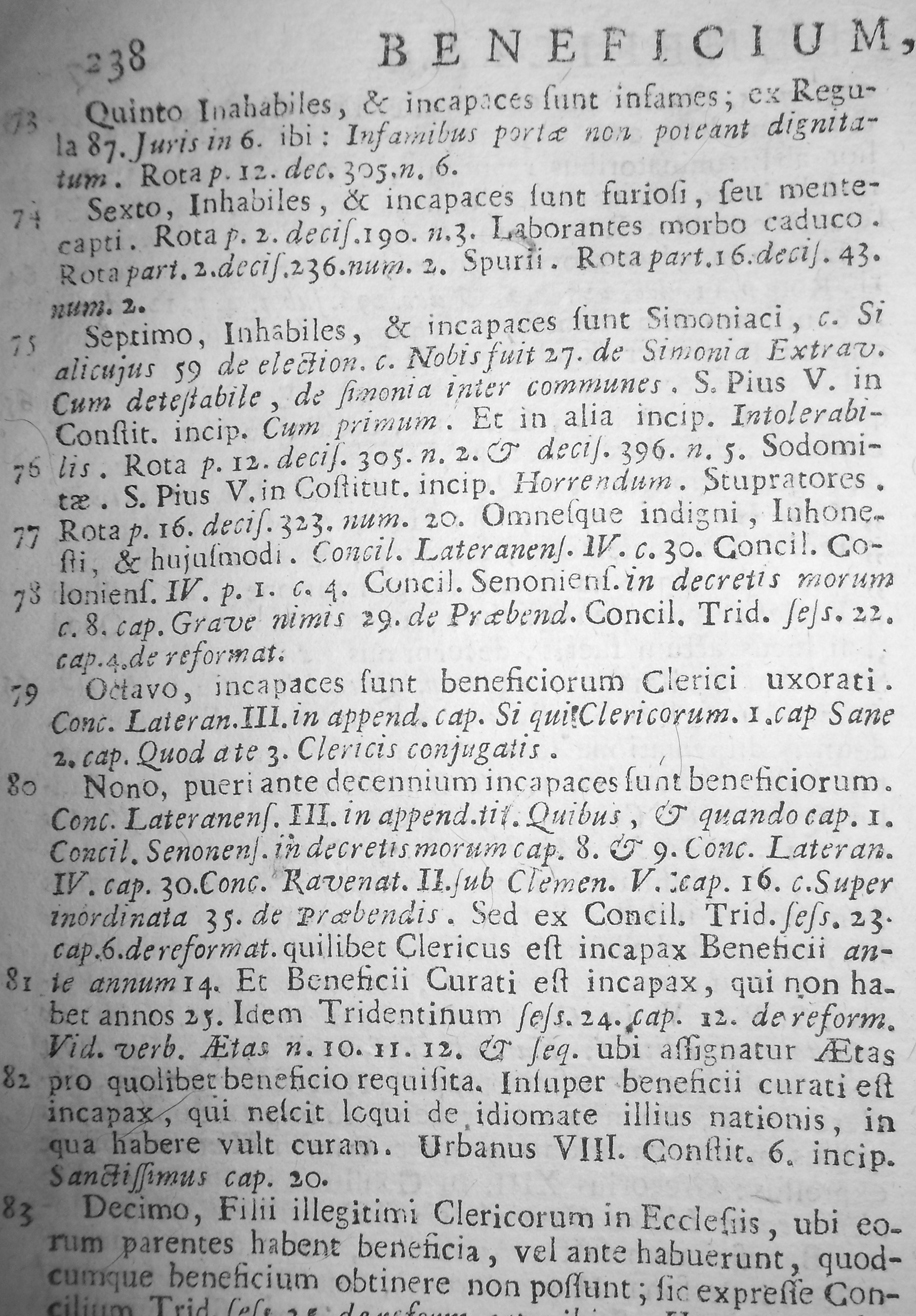 238 BENEFICIUM,
73 Quinto Inahabiles, & incapaces ſunt infames; ex Regu-
la 87. Juris in 6. ibi: Infamibus portæ non poteant dignita-
tum. Rota p. 12. dec. 305. n. 6.
74 Sexto, Inhabiles, & incapaces ſunt furioſi, ſeu mente-
capti. Rota p. 2. deciſ. 190. n. 3. Laborantes morbo caduco.
Rota part. 2. deciſ. 236. num. 2. Spurii. Rota part. 16. deciſ. 43.
num. 2.
75 Septimo, Inhabiles, & incapaces ſunt Simoniaci, c. Si
alicujus 59 de election. c. Nobis fuit 27. de Simonia Extrav.
Cum deteſtabile, de ſimonia inter communes. S. Pius V. in
Conſtit. incip. Cum primum. Et in alia incip. Intolerabi-
76 lis. Rota p. 12. deciſ. 305. n. 2. & deciſ. 396. n. 5. Sodomi-
tæ. S. Pius V. in Coſtitut. incip. Horrendum. Stupratores.
77 Rota p. 16. deciſ. 323. num. 20. Omneſque indigni, Inhone-
ſti, & hujuſmodi. Concil. Lateranenſ. IV. c. 30. Concil. Co-
78 lonienſ. IV. p. 1. c. 4. Concil. Senonienſ. in decretis morum
c. 8. cap. Grave nimis 29. de Præbend. Concil. Trid. ſeſs. 22.
cap. 4. de reformat.
79 Octavo, incapaces ſunt beneficiorum Clerici uxorati.
Conc. Lateran. III. in append. cap. Si quis Clericorum. 1. cap Sane
2. cap. Quod a te 3. Clericis conjugatis.
80 Nono, pueri ante decennium incapaces ſunt beneficiorum.
Conc. Lateranenſ. III. in append. tit. Quibus, & quando cap. 1.
Concil. Senonenſ. in decretis morum cap. 8. & 9. Conc. Lateran.
IV. cap. 30. Conc. Ravenat. II. ſub Clemen. V. cap. 16. c. Super
inordinata 35. de Præbendis. Sed ex Concil. Trid. ſeſs. 23.
cap. 6. de reformat. quilibet Clericus eſt incapax Beneficii an-
81 te annum 14. Et Beneficii Curati eſt incapax, qui non ha-
bet annos 25. Idem Tridentinum ſeſs. 24. cap. 12. de reform.
Vid. verb. Ætas n. 10. 11. 12. & ſeq. ubi aſſignatur Ætas
82 pro quolibet beneficio requiſita. Inſuper beneficii curati eſt
incapax, qui neſcit loqui de idiomate illius nationis, in
qua habere vult curam. Urbanus VIII. Conſtit. 6. incip.
Sanctiſſimus cap. 20.
83 Decimo, Filii illegitimi Clericorum in Eccleſiis, ubi eo-
rum parentes habent beneficia, vel ante habuerunt, quod-
cumque beneficium obtinere non poſſunt; ſic expreſſe Con-
cilium Trid. ſeſs. 25. de